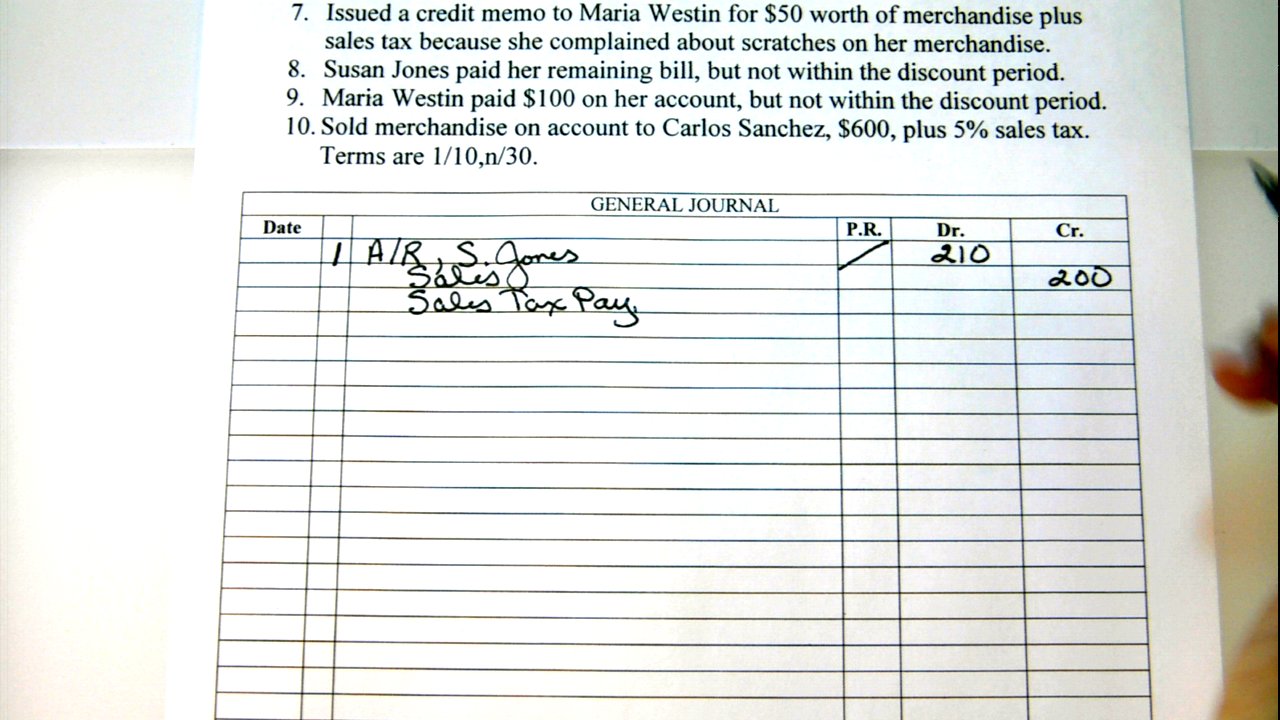 7. Issued a credit memo to Maria Westin for $50 worth of merchandise plus
sales tax because she complained about scratches on her merchandise.
8. Susan Jones paid her remaining bill, but not within the discount period.
9. Maria Westin paid $100 on her account, but not within the discount period.
10. Sold merchandise on account to Carlos Sanchez, $600, plus 5% sales tax.
Terms are 1/10,n/30.
GENERAL JOURNAL
Date P.R. Dr. Cr.
1 A/R, S. Jones 210
Sales 200
Sales Tax Pay.